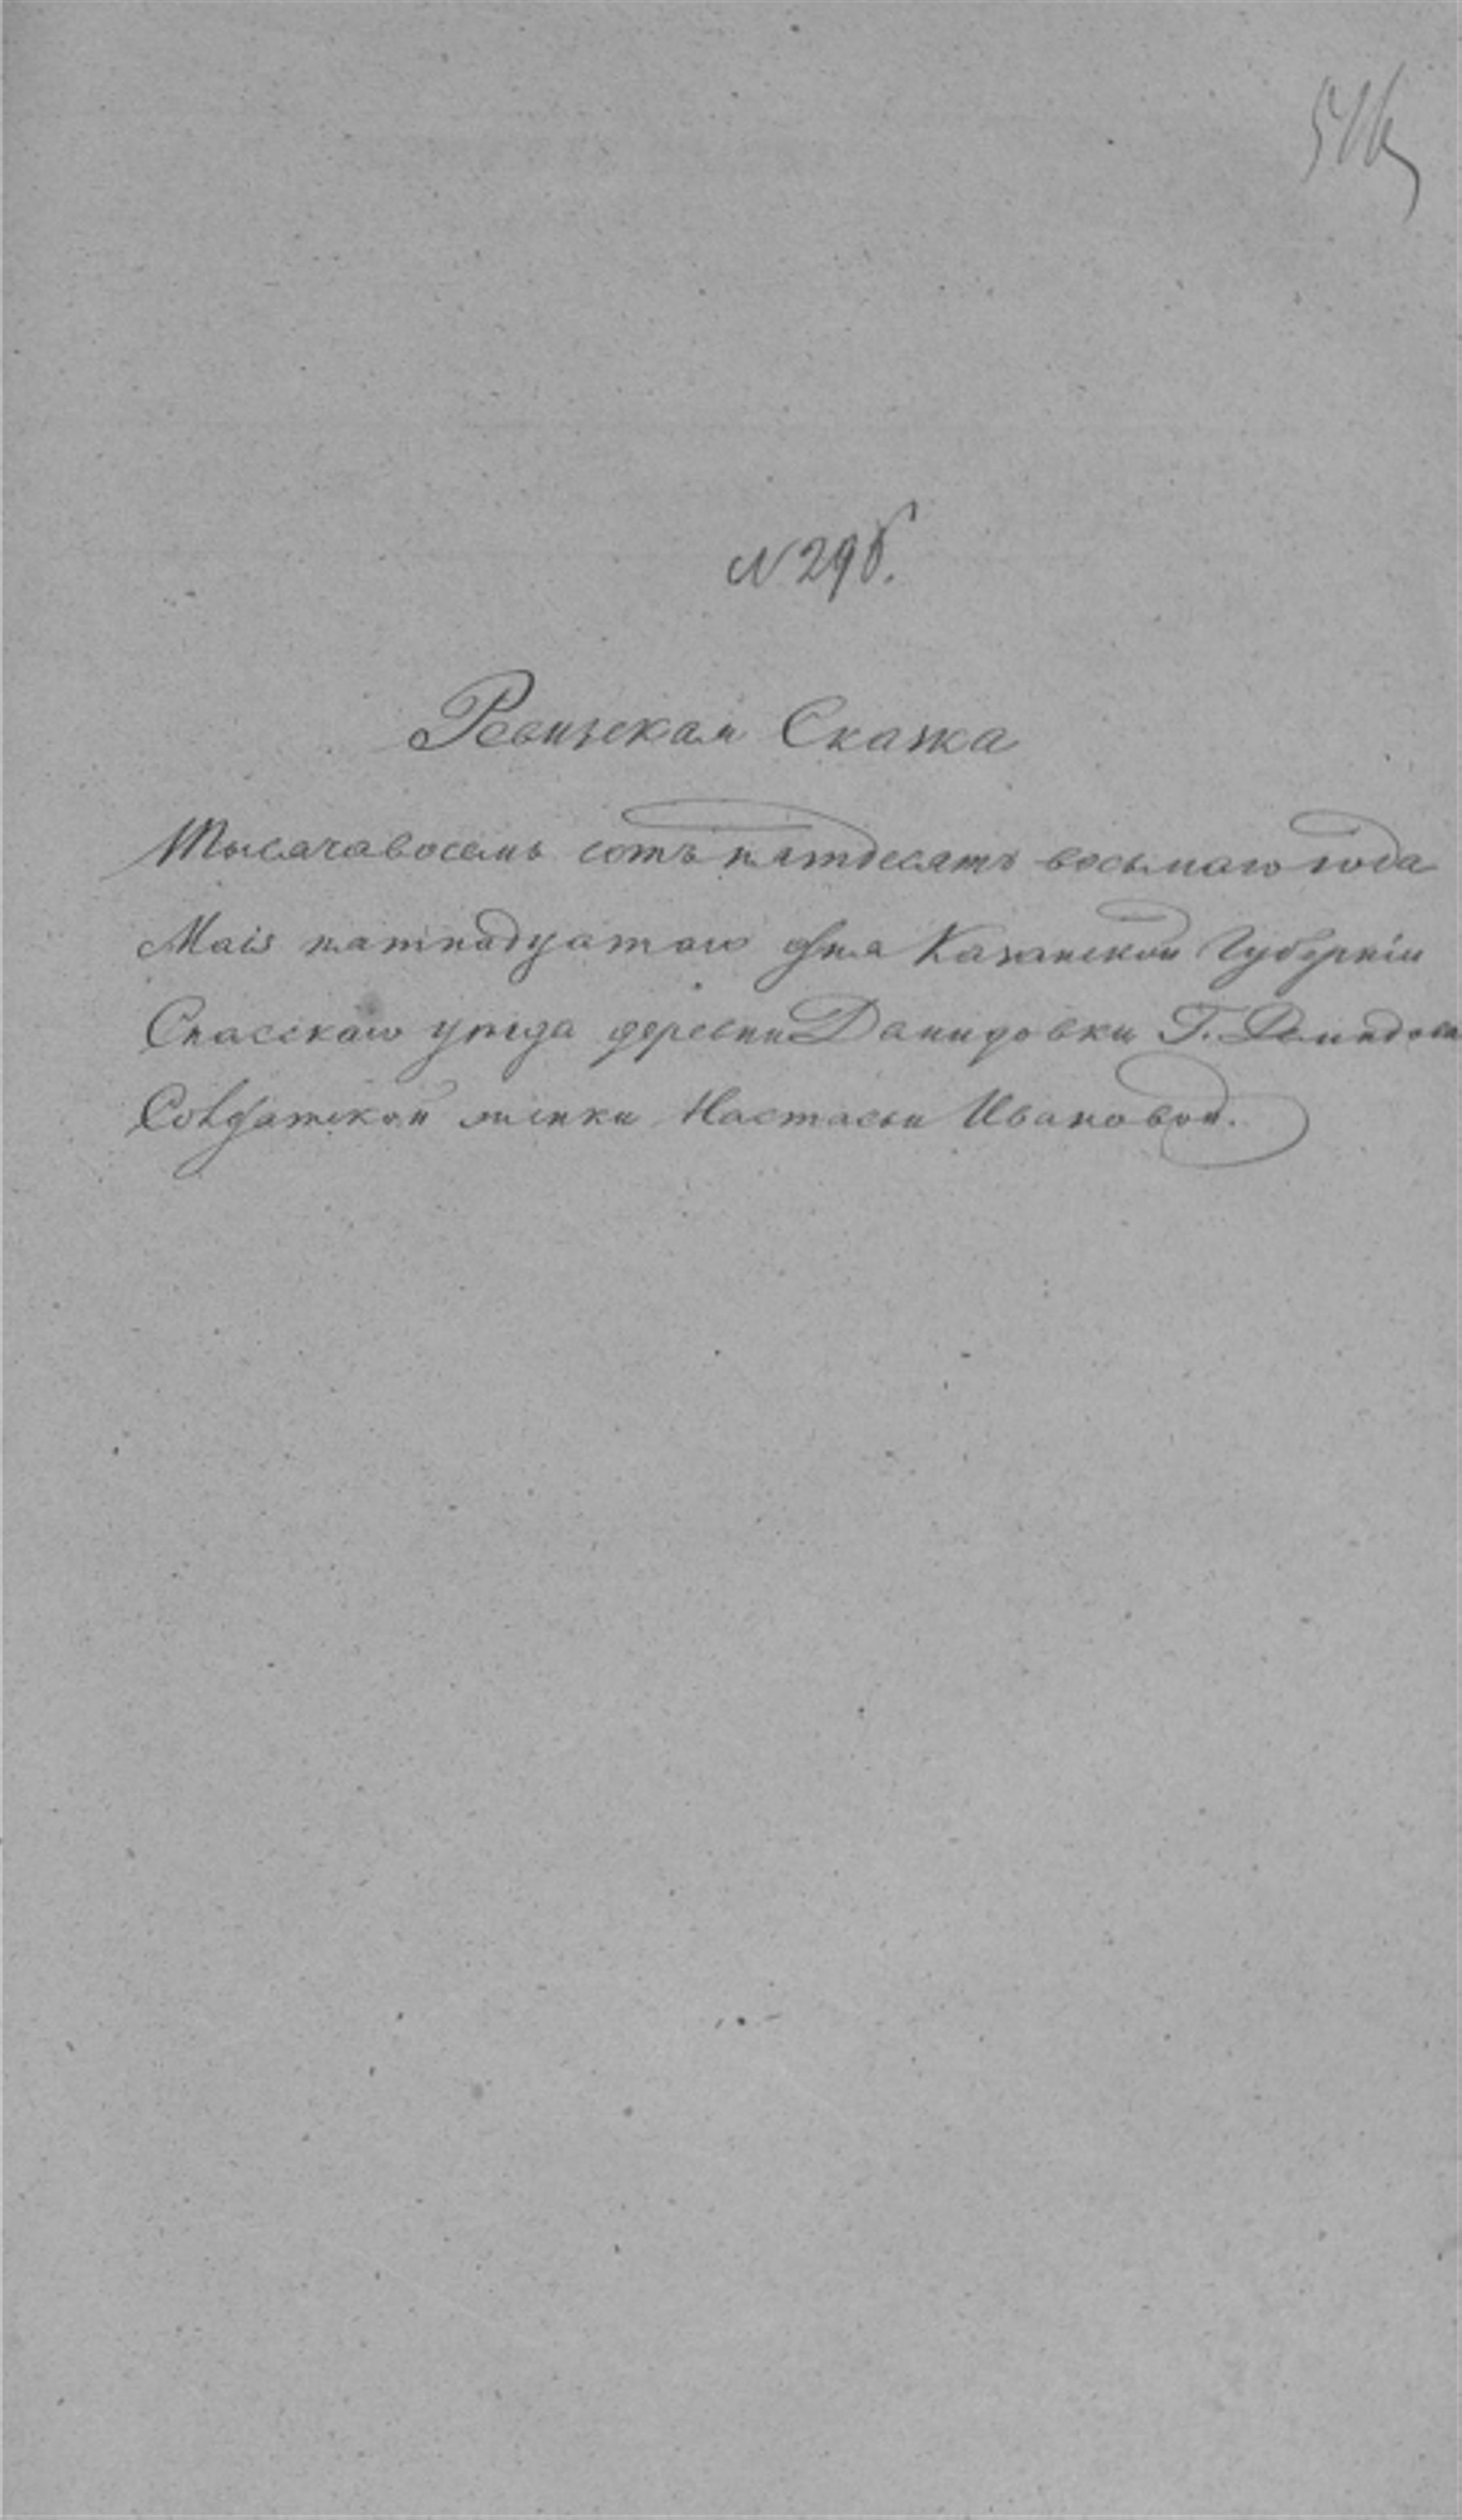 № 298.
Ревизская Сказка
Тысяча восемь сотъ пятдесятъ восьмаго года
Маія пятнадцатаго дня Казанской Губерніи
Спасскаго уѣзда деревни Данидовки Г.
Солдатской женки Настасьи Ивановой.